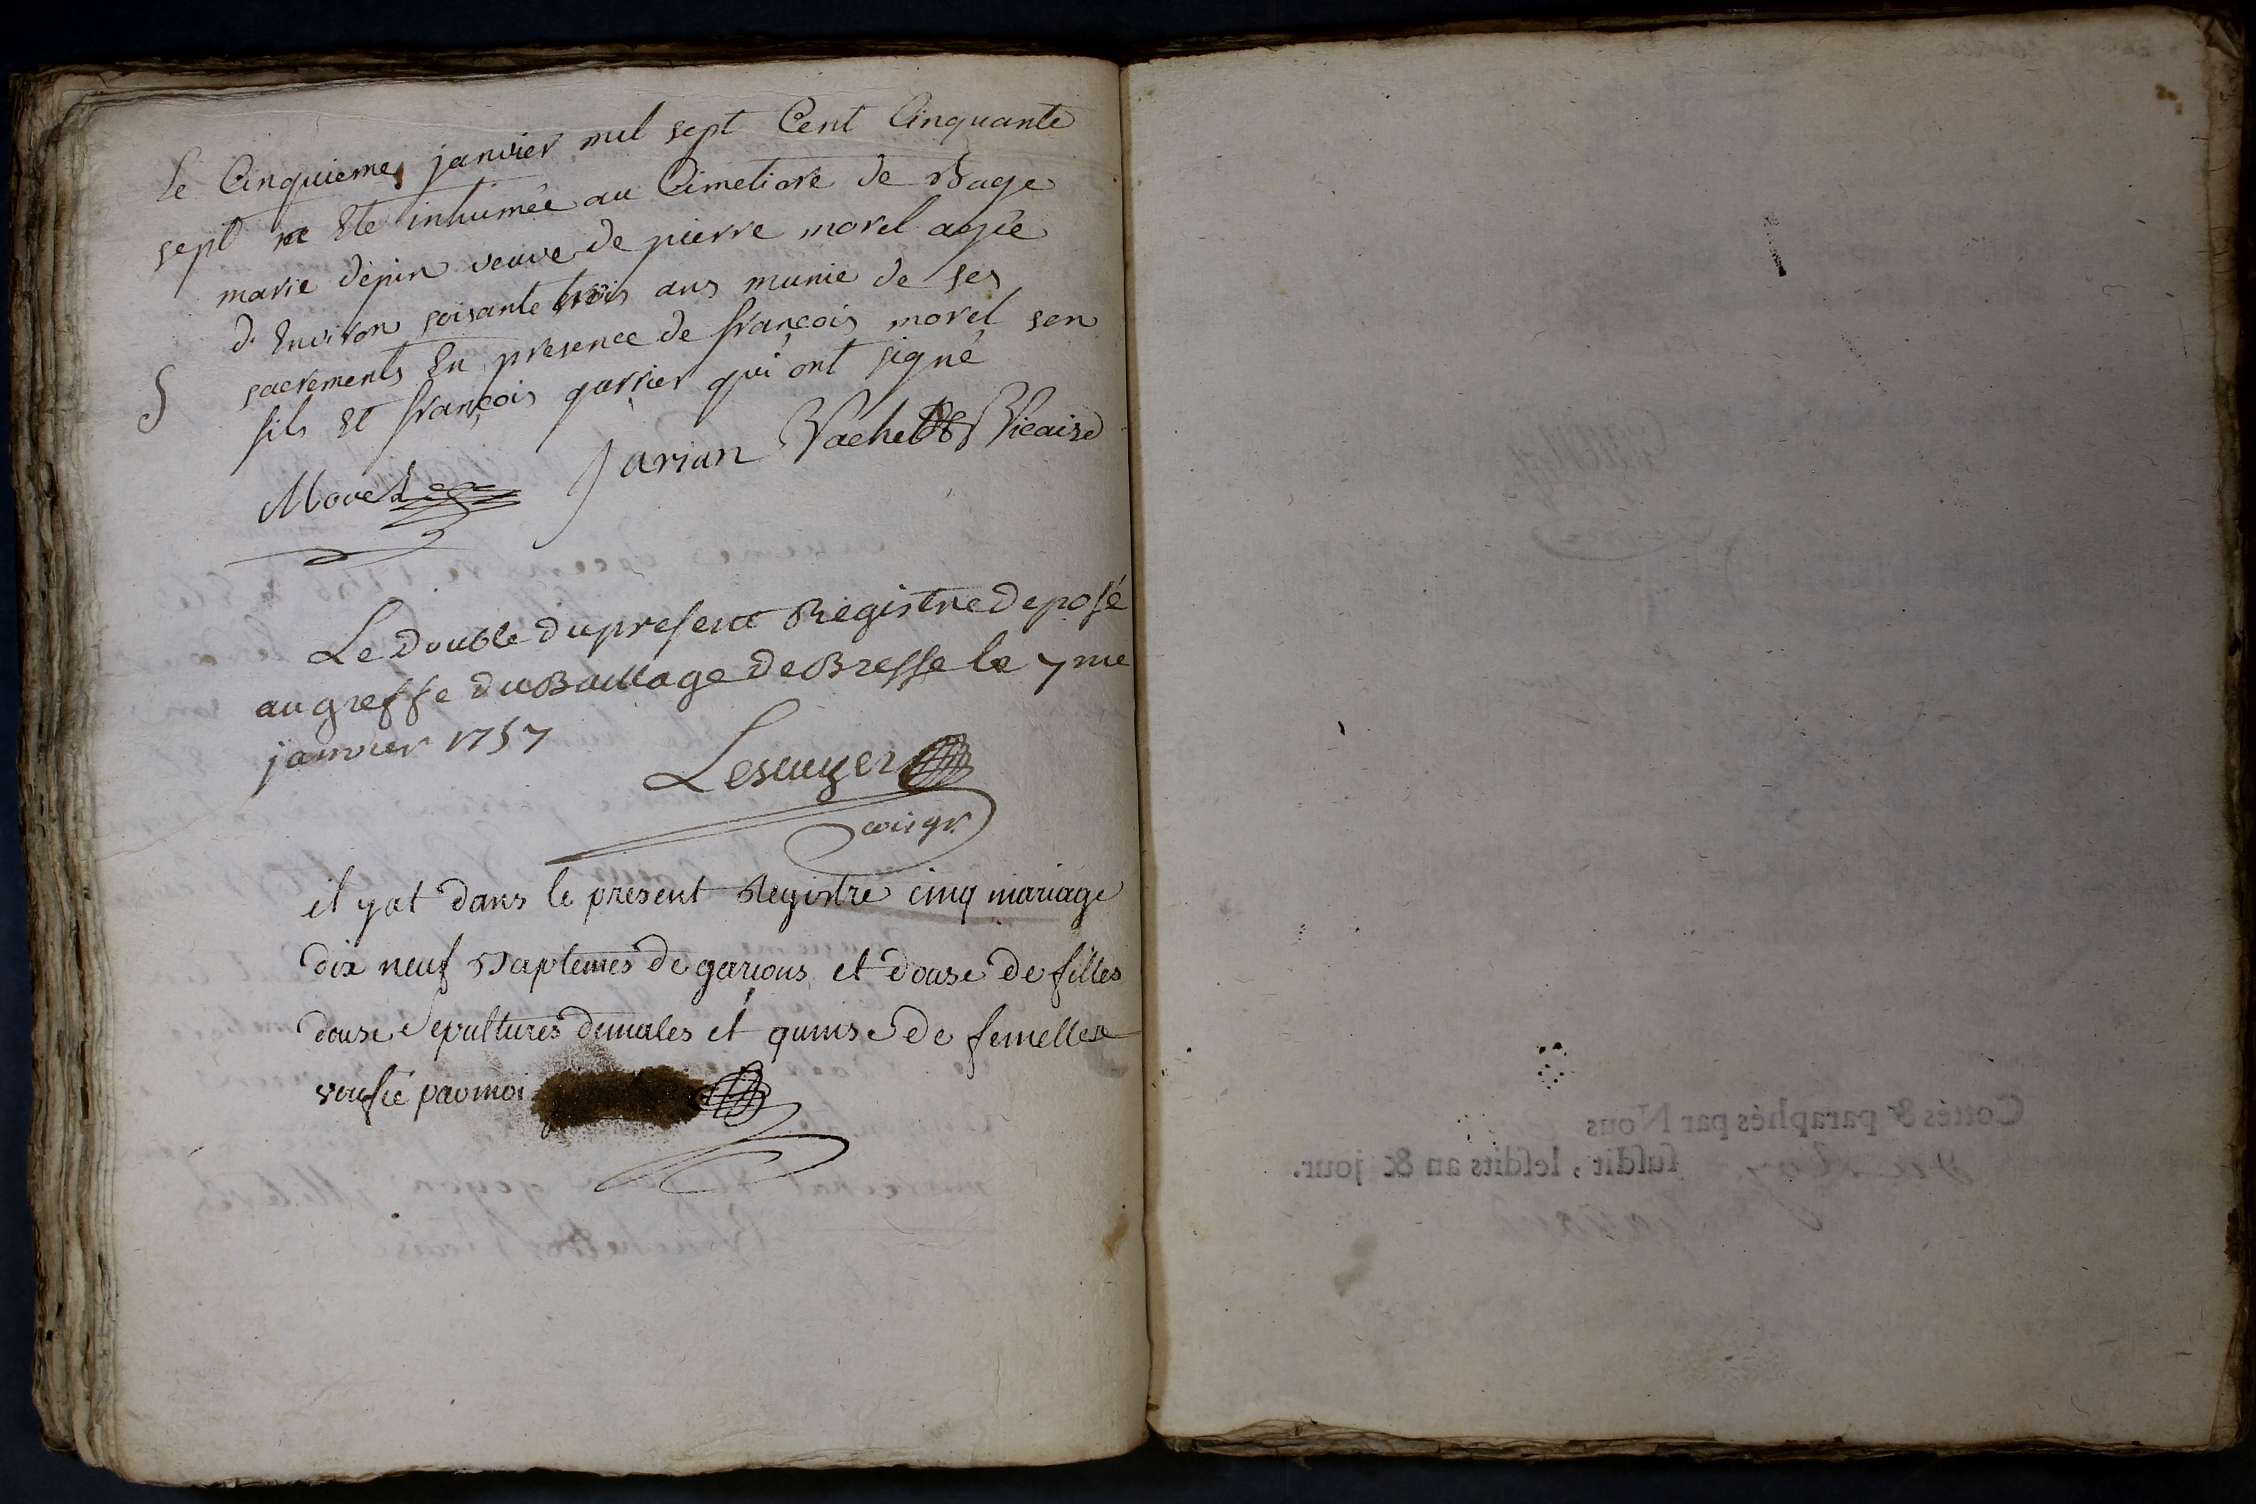 Le Cinquieme janvier mil sept Cent Cinquante
sept a Ete inhumée au Cimetiere de Bage
marie depin veuve de pierre morel agée
d'Environ soisante trois ans munie de ses
sacrements En presence de françois morel son
S
fils Et françois garrier qui ont signé
Morel Jarian Vachet Vicaire
Le Double du present Registre deposé
au greffe du Bailliage de Bresse le 7me
janvier 1757
Lescuyer
il yat dans le present Registre cinq mariage
dix neuf Baptemes de garcons et douse de filles
douse Sepultures de males et quinse de femelles
verifié par moi
Cottés & paraphés par Nous
susdit, lesdits an & jour.